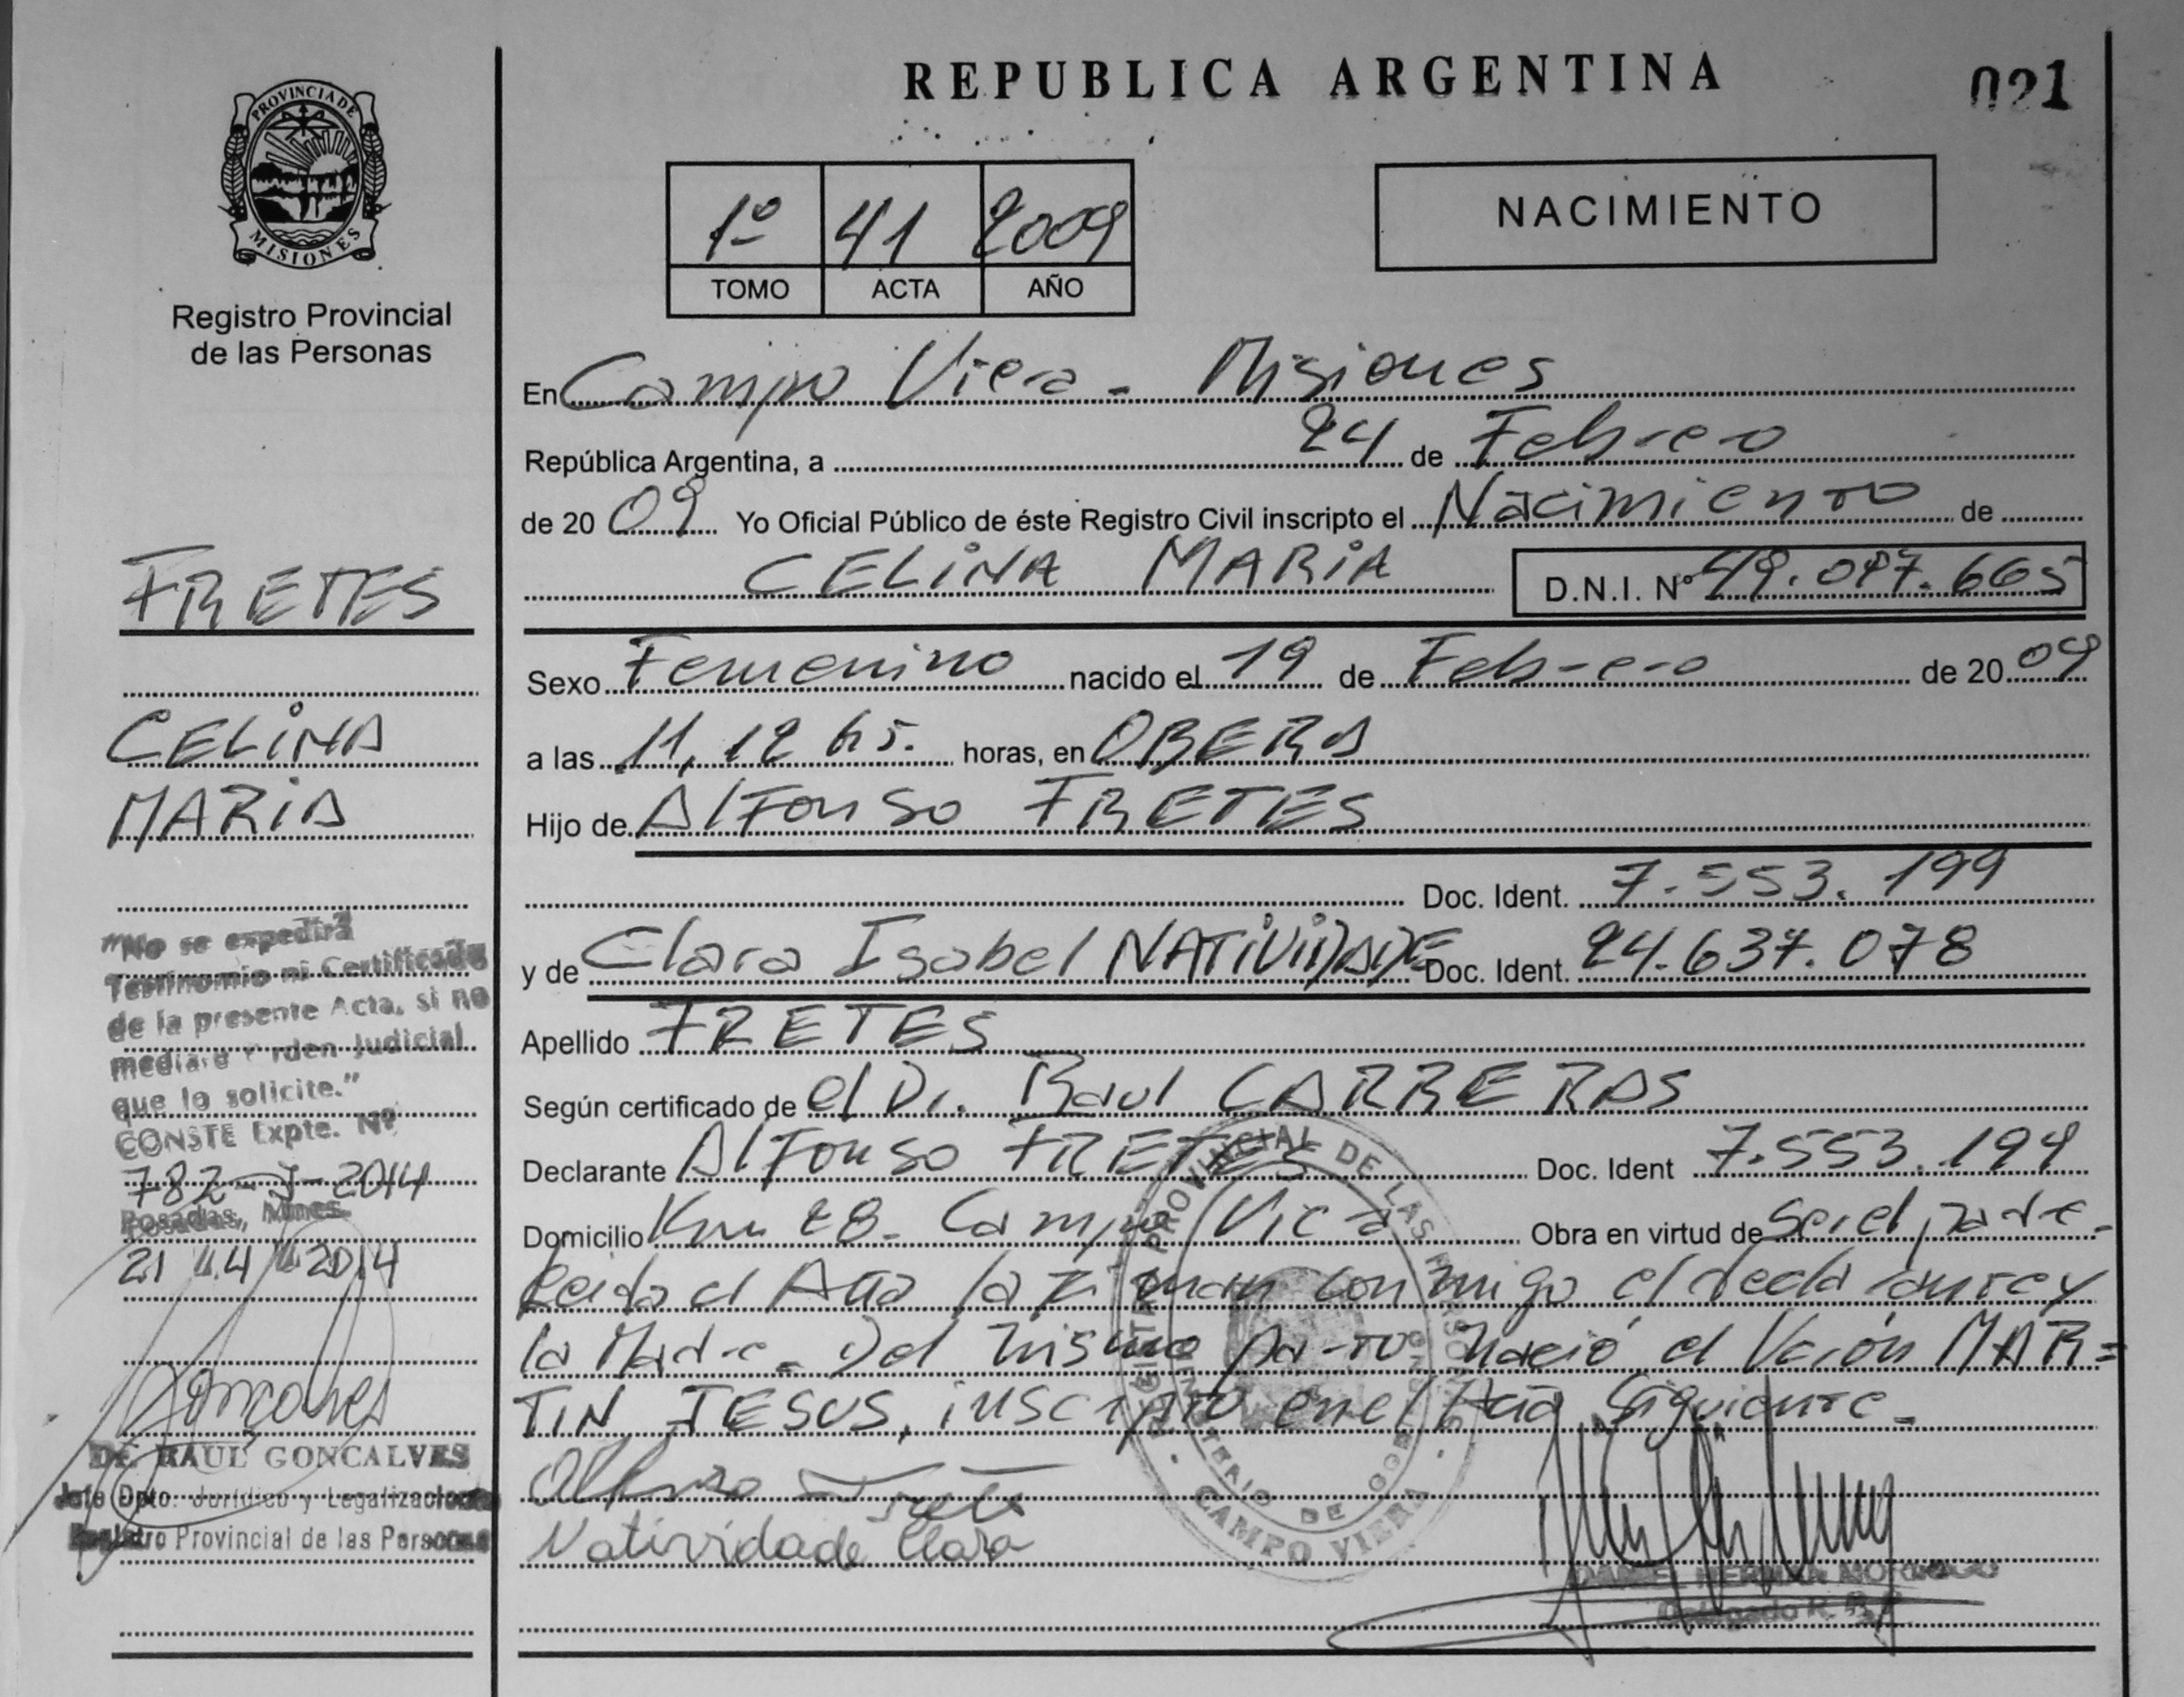 REPUBLICA ARGENTINA
021
PROVINCIA DE
MISIONES
Registro Provincial
de las Personas
1º 41 2009
TOMO ACTA AÑO
NACIMIENTO
En Campo Viera - Misiones
República Argentina, a 24 de Febrero
de 20 09 Yo Oficial Público de éste Registro Civil inscripto el Nacimiento de
CELINA MARIA D.N.I. Nº 49.047.665
Sexo Femenino nacido el 19 de Febrero de 20 09
a las 11,12 hs. horas, en OBERA
Hijo de Alfonso FRETES
Doc. Ident. 7.553.199
y de Clara Isabel NATIVIDADE Doc. Ident. 24.637.078
Apellido FRETES
Según certificado de el Dr. Raul CARRERAS
Declarante Alfonso FRETES Doc. Ident 7.553.199
Domicilio Km 28 - Campo Viera Obra en virtud de Ser el padre -
Leida el Acta la firman conmigo el declarante y
la Madre - Del mismo parto nació el Varón MAR=
TIN JESUS, inscripto en el Acta Siguiente -
Alfonso Fretes
Natividade Clara
DANIEL HERNAN
Delegado R.
PROVINCIAL DE LAS
DE GOB
CAMPO VIERA
FRETES
CELINA
MARIA
"No se expedirá
Testimonio ni Certificado
de la presente Acta, si no
mediare rden Judicial
que lo solicite."
CONSTE Expte. Nº
782-J-2014
Posadas, Mnes.
21 4 2014
Goncalves
DE RAUL GONCALVES
Jefe Dpto. Jurídico y Legalizaciones
Registro Provincial de las Personas